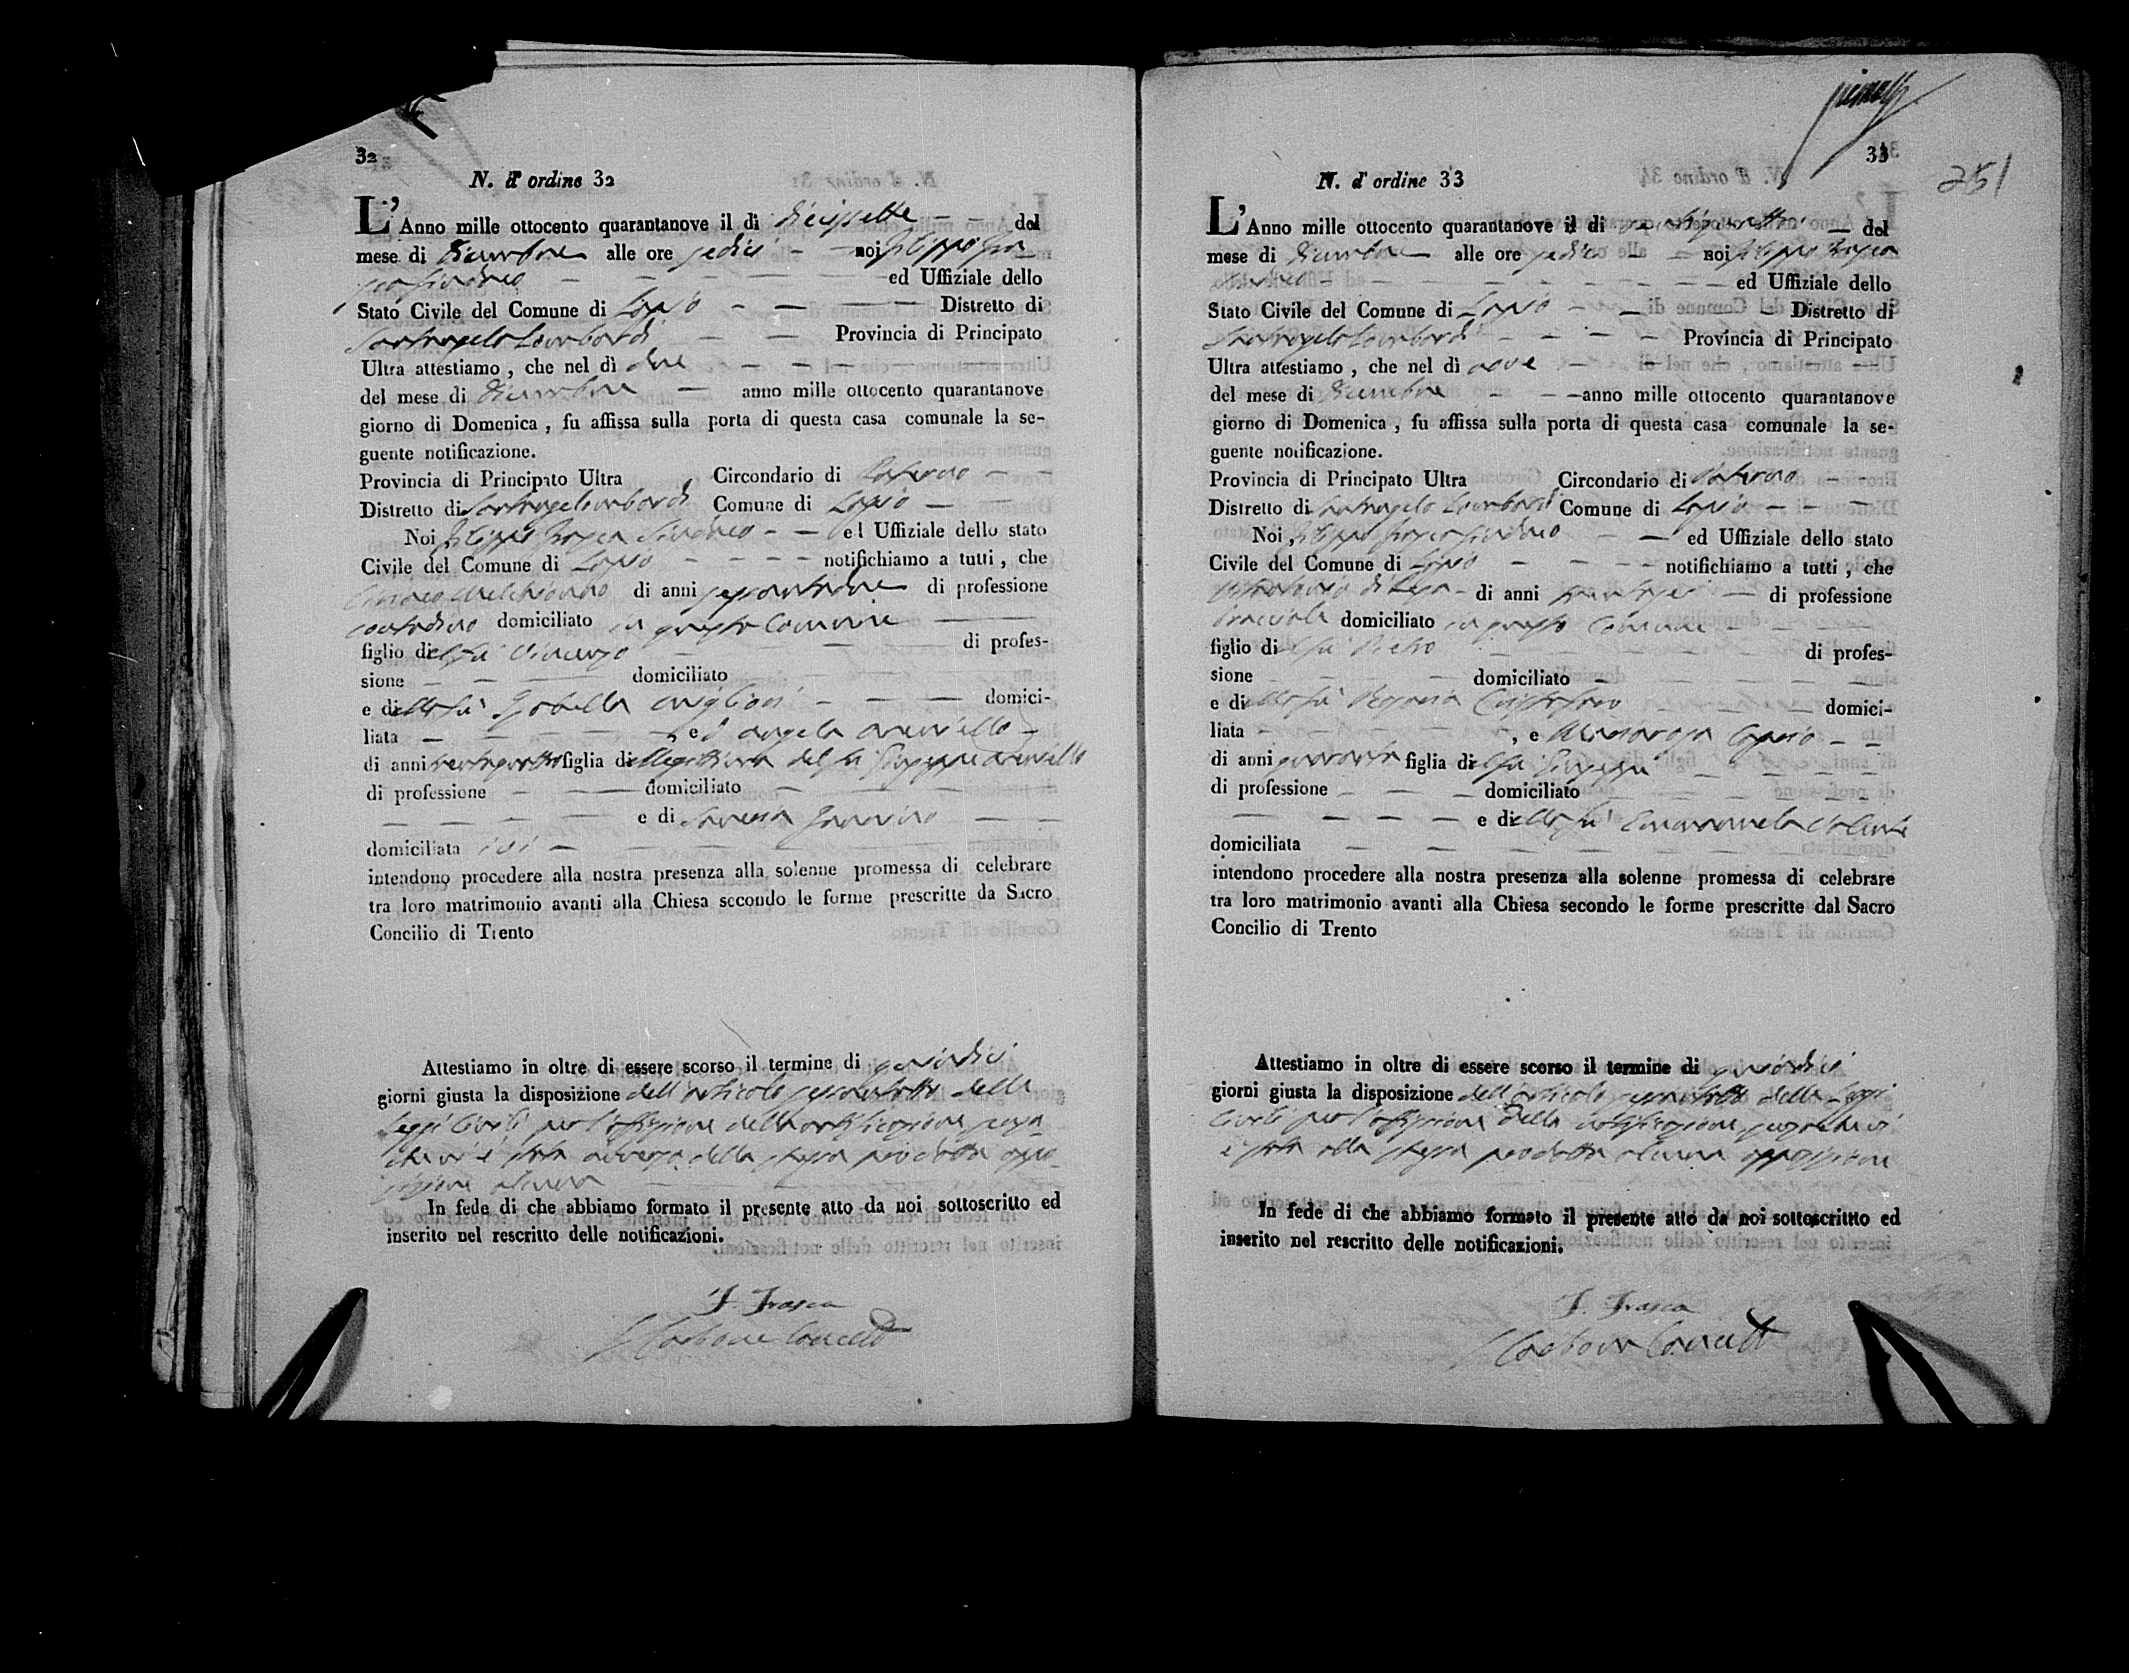 32
N. d' ordine 32
L' Anno mille ottocento quarantanove il dì diecissette del
mese di Dicembre alle ore sedici noi Filippo Fra
sca Sindaco ed Uffiziale dello
Stato Civile del Comune di Lapio Distretto di
Santangelo Lombardi Provincia di Principato
Ultra attestiamo , che nel dì due
del mese di Dicembre anno mille ottocento quarantanove
giorno di Domenica , fu affissa sulla porta di questa casa comunale la se-
guente notificazione.
Provincia di Principato Ultra Circondario di Paterno
Distretto di Santangelo Lombardi Comune di Lapio
Noi Filippo Frasca Sindaco ed Uffiziale dello stato
Civile del Comune di Lapio notifichiamo a tutti , che
di anni sessantadue di professione
contadino domiciliato in questo Comune
figlio del fu Vincenzo di profes-
sione domiciliato
e di della fu Isabella domici-
liata , e D'angela
di anni figlia di del fu Giuseppe
di professione domiciliato
e di
domiciliata ivi
intendono procedere alla nostra presenza alla solenne promessa di celebrare
tra loro matrimonio avanti alla Chiesa secondo le forme prescritte da Sacro
Concilio di Trento
Attestiamo in oltre di essere scorso il termine di quindici
giorni giusta la disposizione dell'articolo sessantotto della
Leggi Civili per l'affissione della notificazione senza
che vi è stata avverso della stessa prodotta oppo-
sizione alcuna
In fede di che abbiamo formato il presente atto da noi sottoscritto ed
inserito nel rescritto delle notificazioni.
F. Frasca
33
251
N. d' ordine 33
L' Anno mille ottocento quarantanove il dì del
mese di Dicembre alle ore sedici noi Filippo Frasca
Sindaco ed Uffiziale dello
Stato Civile del Comune di Lapio Distretto di
Santangelo Lombardi Provincia di Principato
Ultra attestiamo , che nel dì nove
del mese di Dicembre anno mille ottocento quarantanove
giorno di Domenica , fu affissa sulla porta di questa casa comunale la se-
guente notificazione.
Provincia di Principato Ultra Circondario di Paterno
Distretto di Santangelo Lombardi Comune di Lapio
Noi , Filippo Frasca Sindaco ed Uffiziale dello stato
Civile del Comune di Lapio notifichiamo a tutti , che
di anni di professione
domiciliato in questo Comune
figlio di del fu Pietro di profes-
sione domiciliato
e di della fu domici-
liata , e
di anni quaranta figlia di del fu Giuseppe
di professione domiciliato
e di della fu Emanuela
domiciliata
intendono procedere alla nostra presenza alla solenne promessa di celebrare
tra loro matrimonio avanti alla Chiesa secondo le forme prescritte dal Sacro
Concilio di Trento
Attestiamo in oltre di essere scorso il termine di quindici
giorni giusta la disposizione dell'articolo sessantotto delle Leggi
Civili per l'affissione della notificazione senza che vi
è stata alla stessa prodotta alcuna opposizione
In fede di che abbiamo formato il presente atto da noi sottoscritto ed
inserito nel rescritto delle notificazioni.
F. Frasca